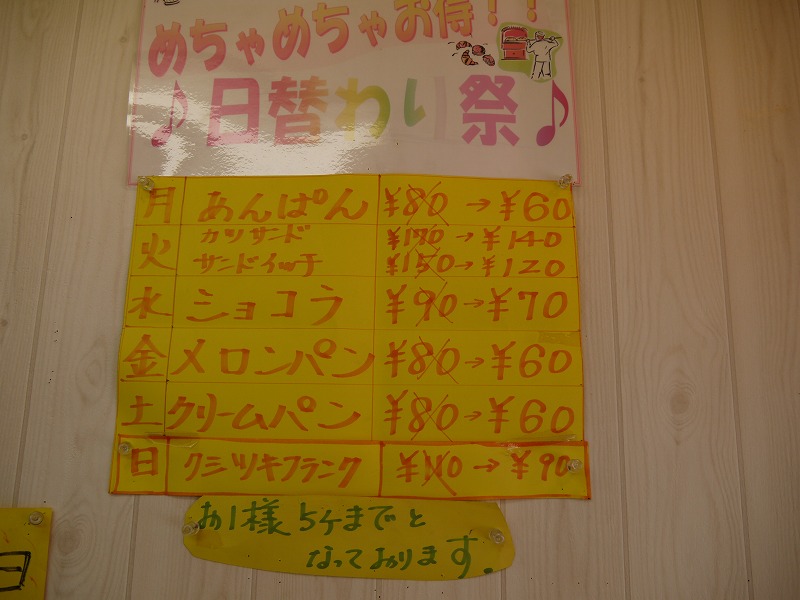 めちゃめちゃお得！！
♪日替わり祭♪
月 あんぱん ¥80→¥60
火 カツサンド ¥170→¥140
サンドイッチ ¥150→¥120
水 ショコラ ¥90→¥70
金 メロンパン ¥80→¥60
土 クリームパン ¥80→¥60
日 クシツキフランク ¥110→¥90
お1様 5ケまでと
なっております.
日